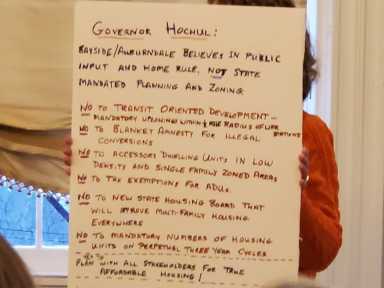 GOVERNOR HOCHUL:
BAYSIDE/AUBURNDALE BELIEVES IN PUBLIC
INPUT AND HOME RULE, NOT STATE
MANDATED PLANNING AND ZONING
NO TO TRANSIT ORIENTED DEVELOPMENT -
MANDATORY UPZONING WITHIN ½ MILE RADIUS OF LIRR STATIONS
NO TO BLANKET AMNESTY FOR ILLEGAL
CONVERSIONS
NO TO ACCESSORY DWELLING UNITS IN LOW
DENSITY AND SINGLE FAMILY ZONED AREAS
NO TO TAX EXEMPTIONS FOR ADUs.
NO TO NEW STATE HOUSING BOARD THAT
WILL MULTI-FAMILY HOUSING
EVERYWHERE
NO TO MANDATORY NUMBERS OF HOUSING
UNITS ON PERPETUAL THREE YEAR CYCLES
PLAN WITH ALL STAKEHOLDERS FOR TRUE
AFFORDABLE HOUSING!